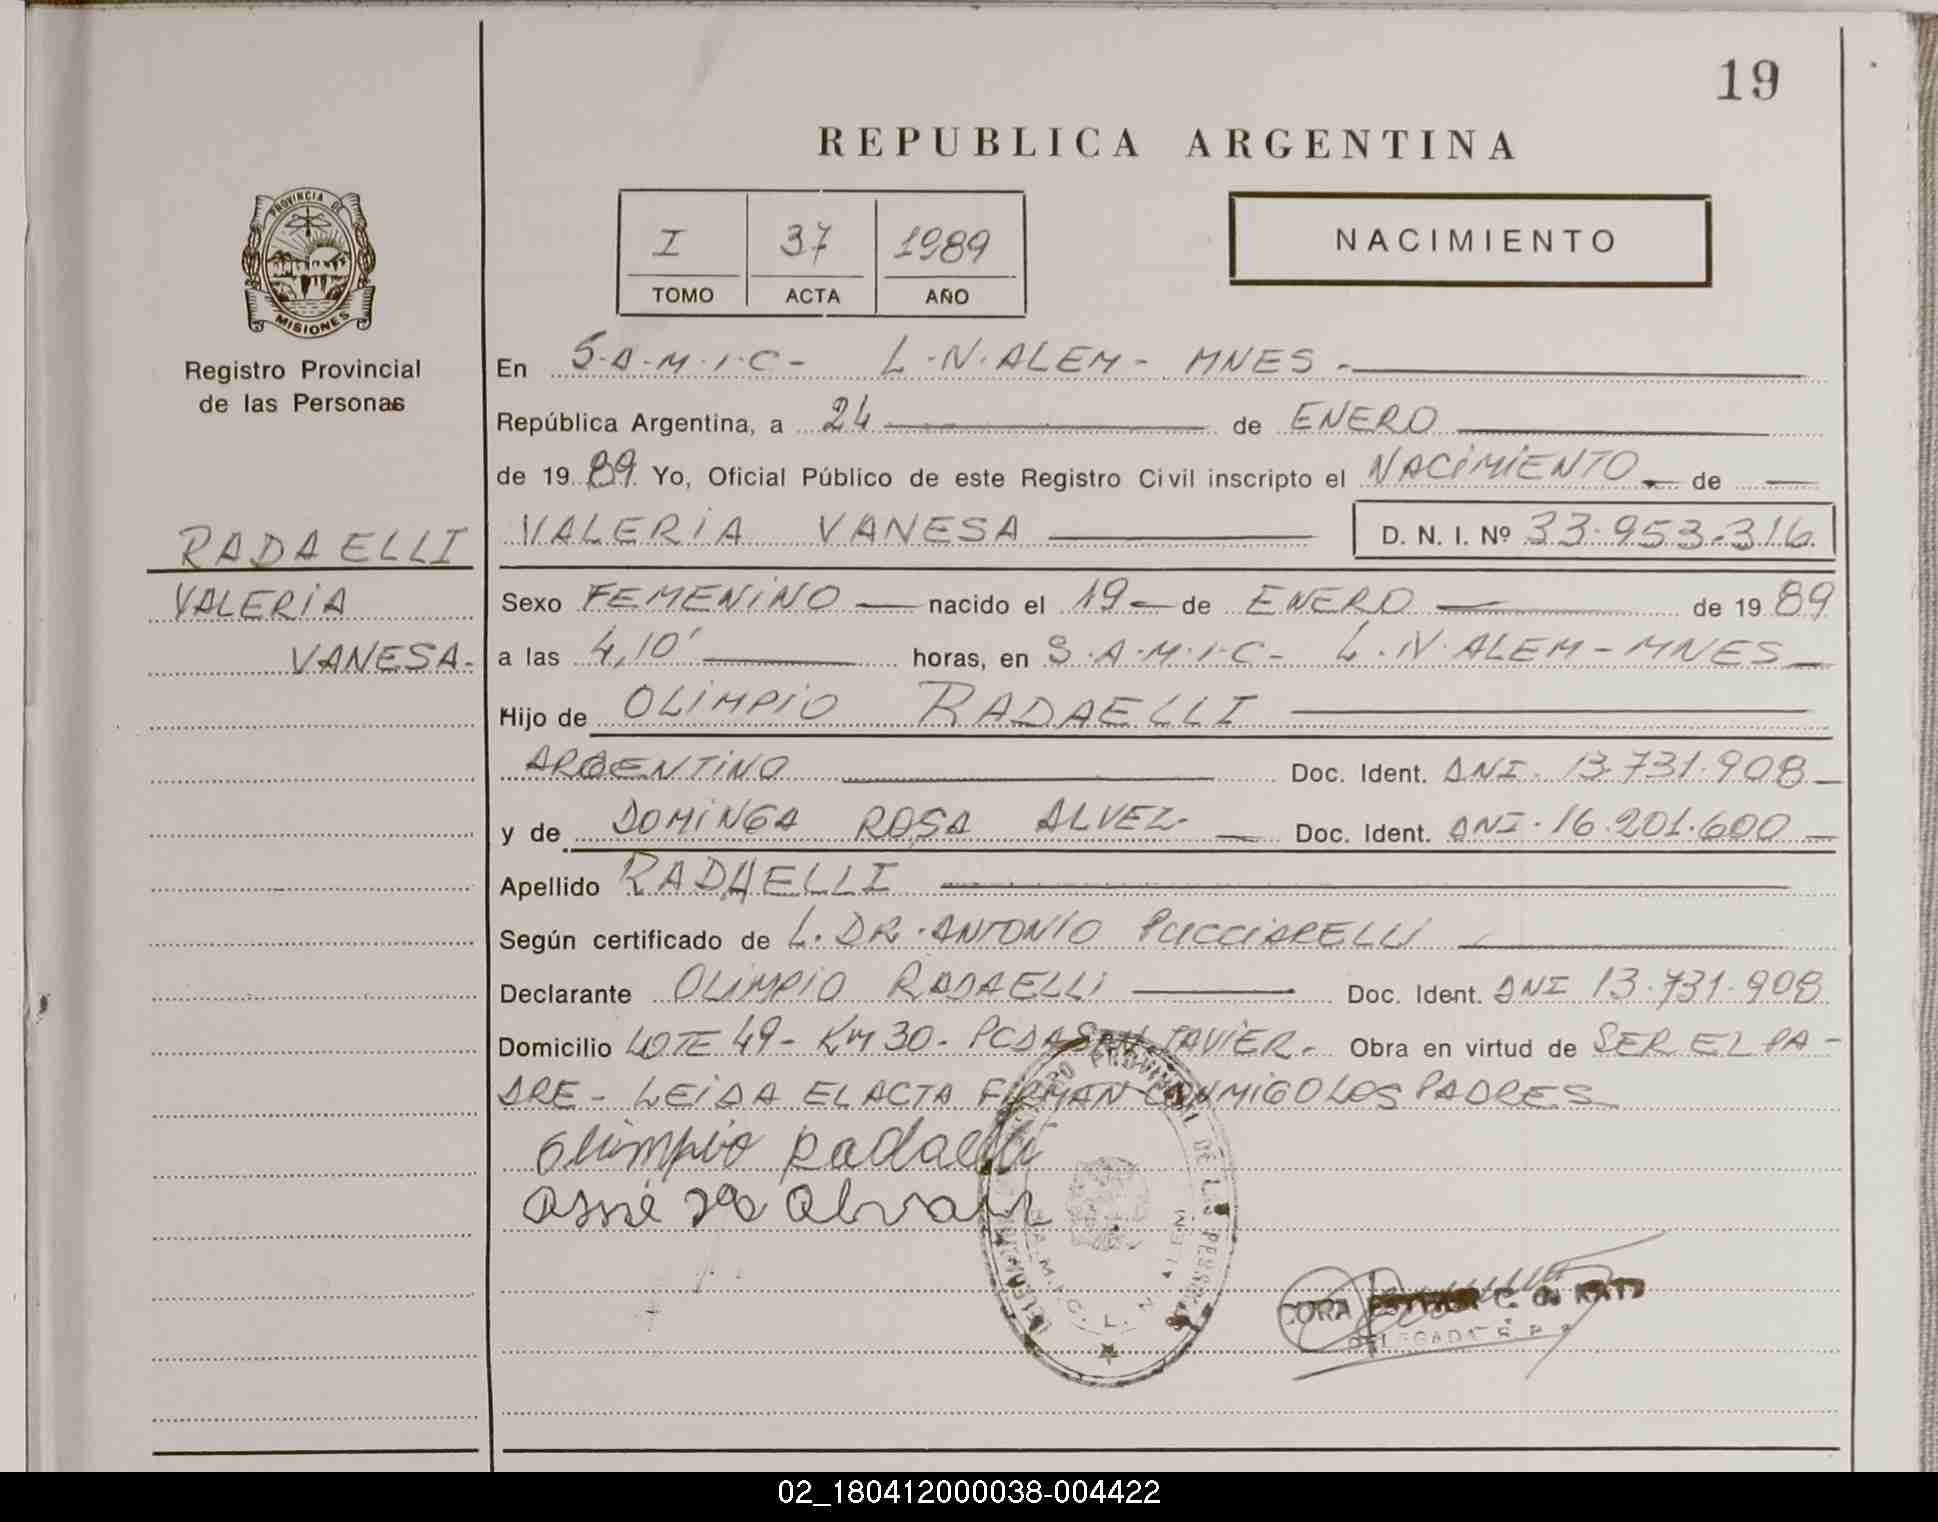 19
REPUBLICA ARGENTINA
PROVINCIA DE
MISIONES
Registro Provincial
de las Personas
I 37 1989
TOMO ACTA AÑO
NACIMIENTO
RADAELLI
VALERIA
VANESA.
En S.A.M.I.C- L.N.ALEM- MNES-
República Argentina, a 24 de ENERO
de 1989 Yo, Oficial Público de este Registro Civil inscripto el NACIMIENTO de
VALERIA VANESA D. N. I. Nº 33.953.316
Sexo FEMENINO nacido el 19 de ENERO de 1989
a las 4,10' horas, en S.A.M.I.C- L.N.ALEM-MNES
Hijo de OLIMPIO RADAELLI
ARGENTINO Doc. Ident. DNI. 13.731.908
y de DOMINGA ROSA ALVEZ- Doc. Ident. DNI. 16.201.600
Apellido RADAELLI
Según certificado de L. DR. ANTONIO PUCCIARELLI
Declarante OLIMPIO RADAELLI Doc. Ident. DNI 13.731.908
Domicilio LOTE 49- KM 30- PCDA SAN JAVIER. Obra en virtud de SER EL PA-
DRE- LEIDA EL ACTA FIRMAN CONMIGO LOS PADRES
olimpio Radaelli
REGISTRO PROVINCIAL DE LAS PERSONAS
S.A.M.I.C. L. N. ALEM
CORA ESTHER C. de KATZ
DELEGADA R. P. P.
02_180412000038-004422